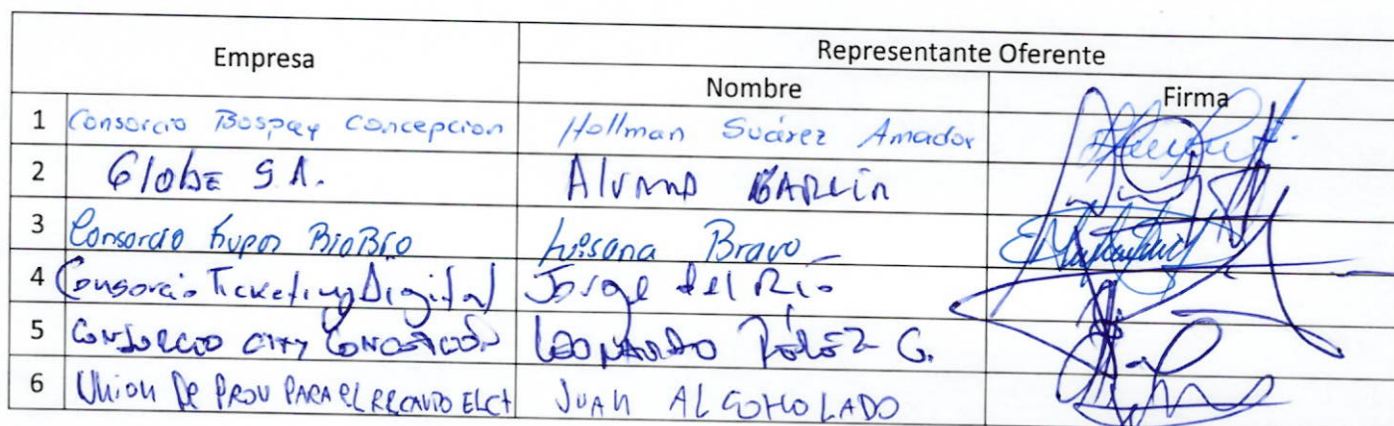 Empresa Representante Oferente
Nombre Firma
1 Consorcio Bospay Concepcion Hollman Suárez Amador
2 Globe S.A. Alvaro
3 Consorcio BioBio Luisana Bravo
4 Consorcio Ticketing Digital Jorge del Río
5 Consorcio City Concepción Leonardo Pérez G.
6 Union De Prov PARA el RECAUDO ELCT JUAN ALCOHOLADO